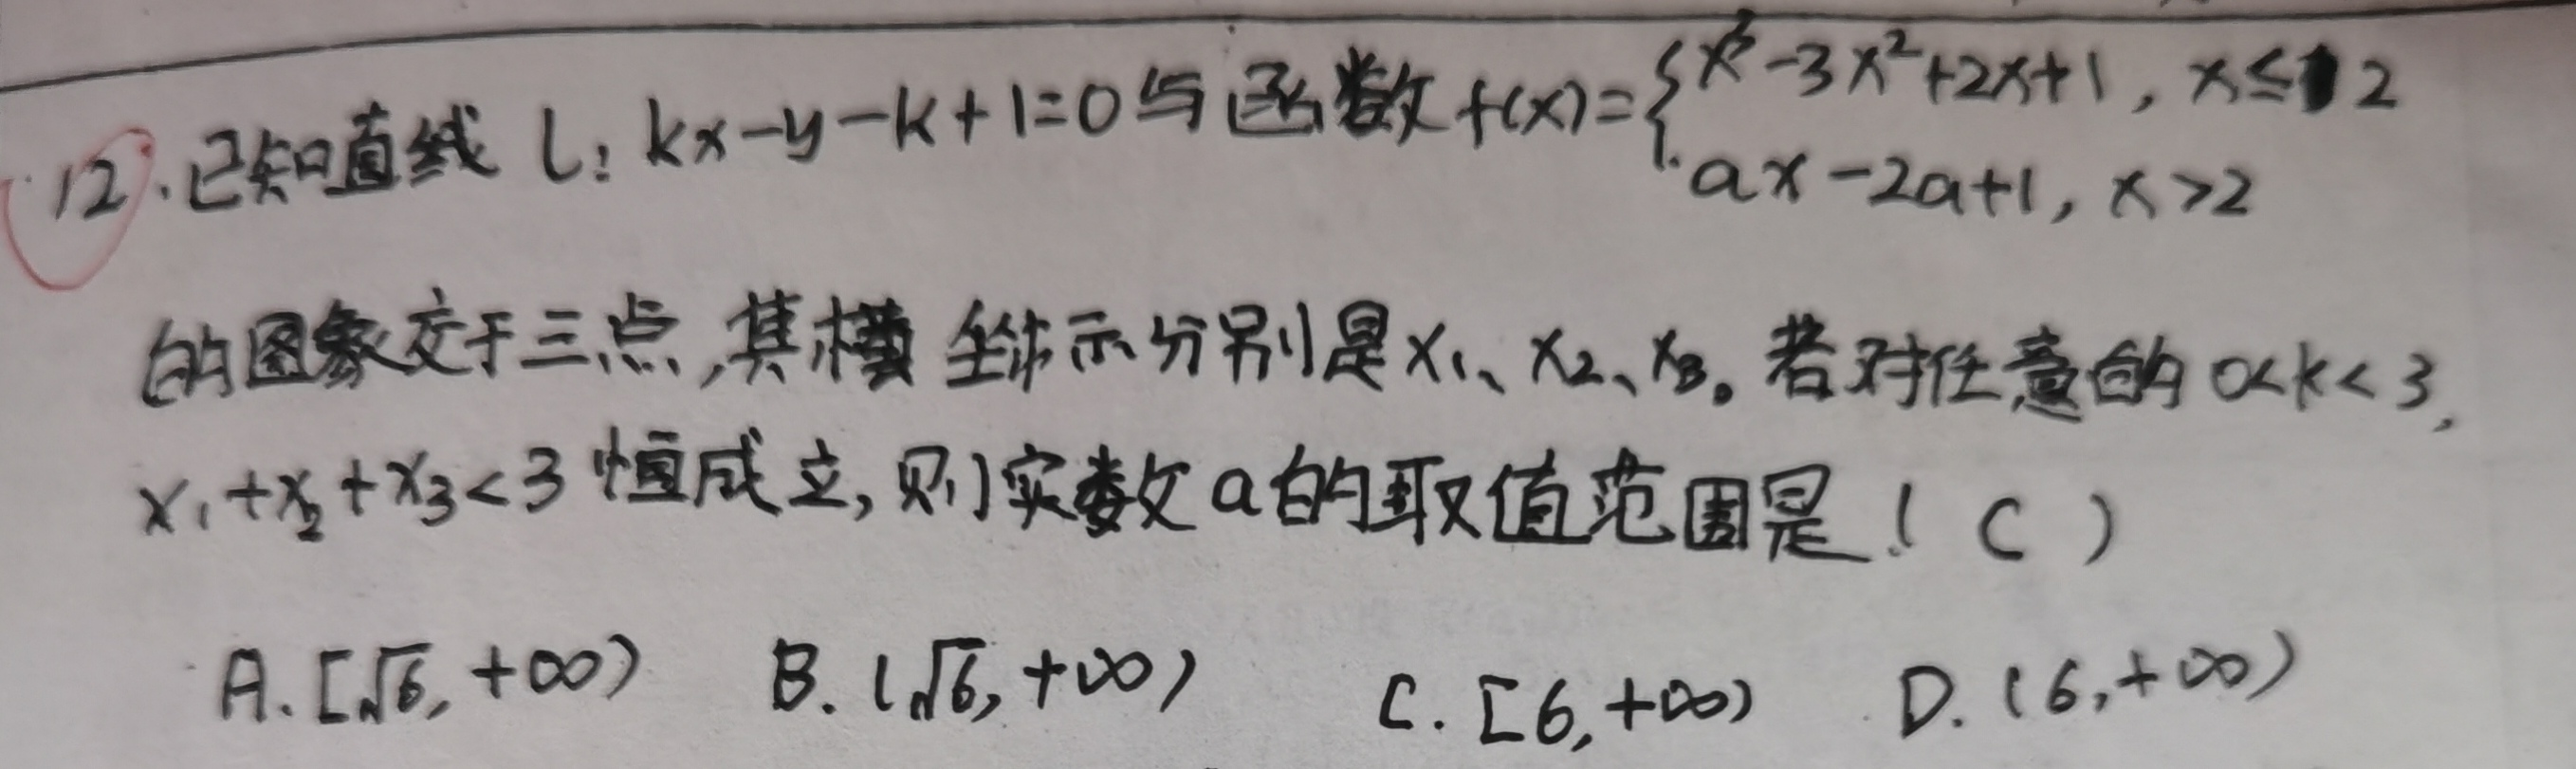 12.已知直线 l: kx-y-k+1=0与函数f(x)={x³-3x²+2x+1, x≤2
ax-2a+1, x>2
的图象交于三点,其横坐标示分别是x₁、x₂、x₃。若对任意的0<k<3,
x₁+x₂+x₃<3恒成立,则实数a的取值范围是(C)
A.[√6,+∞) B.(√6,+∞) C.[6,+∞) D.(6,+∞)